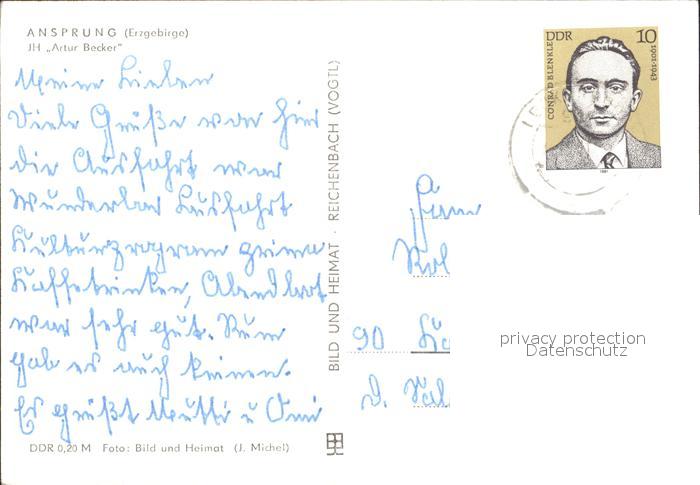 ANSPRUNG (Erzgebirge)
JH „Artur Becker"
Meine Lieben
Viele Grüße von hier
die Ausfahrt war
wunderbar Ausfahrt
Kulturprogram prima
Kaffetrinken, Abendbrot
war sehr gut. Rum
gab es auch keinen.
Es grüßt Mutti u Omi
DDR 0,20 M Foto: Bild und Heimat (J. Michel)
BILD UND HEIMAT · REICHENBACH (VOGTL)
DDR 10
CONRAD BLENKLE
1901-1943
1981
Fam
90
privacy protection
Datenschutz